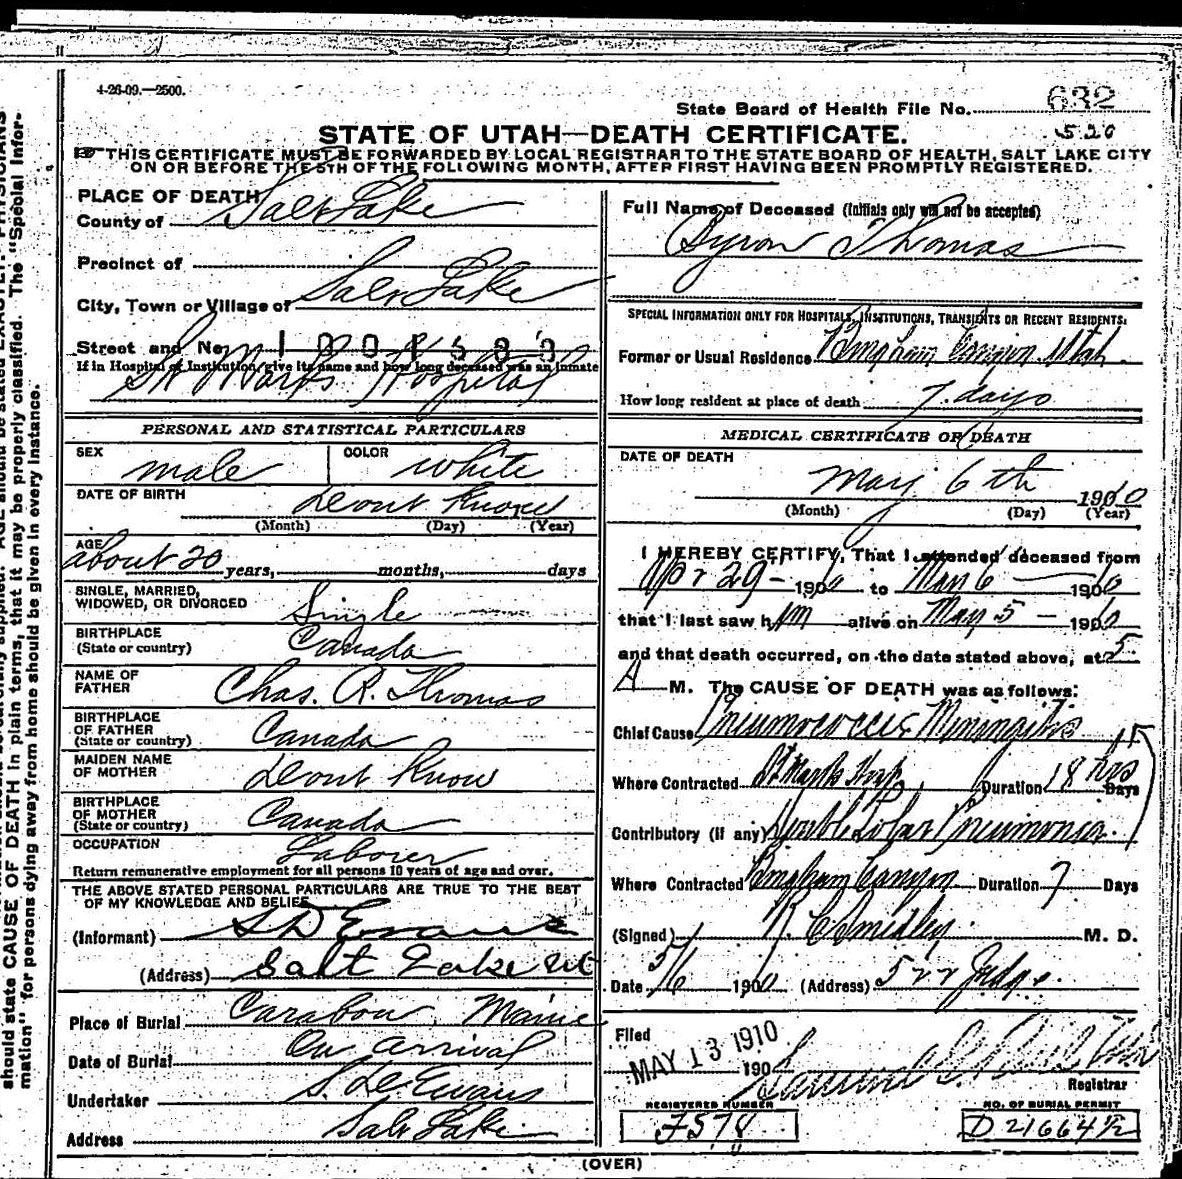 4-26-09.—2500.
State Board of Health File No. 632
STATE OF UTAH—DEATH CERTIFICATE. 520
THIS CERTIFICATE MUST BE FORWARDED BY LOCAL REGISTRAR TO THE STATE BOARD OF HEALTH, SALT LAKE CITY
ON OR BEFORE THE 5TH OF THE FOLLOWING MONTH, AFTER FIRST HAVING BEEN PROMPTLY REGISTERED.
PLACE OF DEATH
County of Salt Lake
Precinct of
City, Town or Village of Salt Lake
Street and No.
If in Hospital or Institution, give its name and how long deceased was an inmate
St Marks Hospital
PERSONAL AND STATISTICAL PARTICULARS
SEX male COLOR white
DATE OF BIRTH Dont Know
(Month) (Day) (Year)
AGE about 20 years, months, days
SINGLE, MARRIED,
WIDOWED, OR DIVORCED Single
BIRTHPLACE
(State or country) Canada
NAME OF
FATHER Chas. R. Thomas
BIRTHPLACE
OF FATHER
(State or country) Canada
MAIDEN NAME
OF MOTHER Dont Know
BIRTHPLACE
OF MOTHER
(State or country) Canada
OCCUPATION Laborer
Return remunerative employment for all persons 10 years of age and over.
THE ABOVE STATED PERSONAL PARTICULARS ARE TRUE TO THE BEST
OF MY KNOWLEDGE AND BELIEF
(Informant) S D Evans
(Address) Salt Lake Ut
Place of Burial Carabou, Maine
Date of Burial On arrival
Undertaker S. D. Evans
Address Salt Lake
Full Name of Deceased (Initials only will not be accepted)
Byron Thomas
SPECIAL INFORMATION ONLY FOR HOSPITALS, INSTITUTIONS, TRANSIENTS OR RECENT RESIDENTS.
Former or Usual Residence Bingham Canyon Utah
How long resident at place of death 7. days
MEDICAL CERTIFICATE OF DEATH
DATE OF DEATH
May 6 th 1910
(Month) (Day) (Year)
I HEREBY CERTIFY, That I attended deceased from
Apr 29 - 1910 to May 6 — 1910
that I last saw him alive on May 5 - 1910
and that death occurred, on the date stated above, at 5
A M. The CAUSE OF DEATH was as follows:
Chief Cause Pneumococcic Meningitis
Where Contracted St Marks Hosp Duration 18 hrs Days
Contributory (if any) Double Lobar Pneumonia
Where Contracted Bingham Canyon Duration 7 Days
(Signed) M. D.
Date 5/6 1910 (Address) 522 Judge.
Filed
MAY 13 1910
190
Registrar
REGISTERED NUMBER
F578
NO. OF BURIAL PERMIT
D 21664 1/2
(OVER)